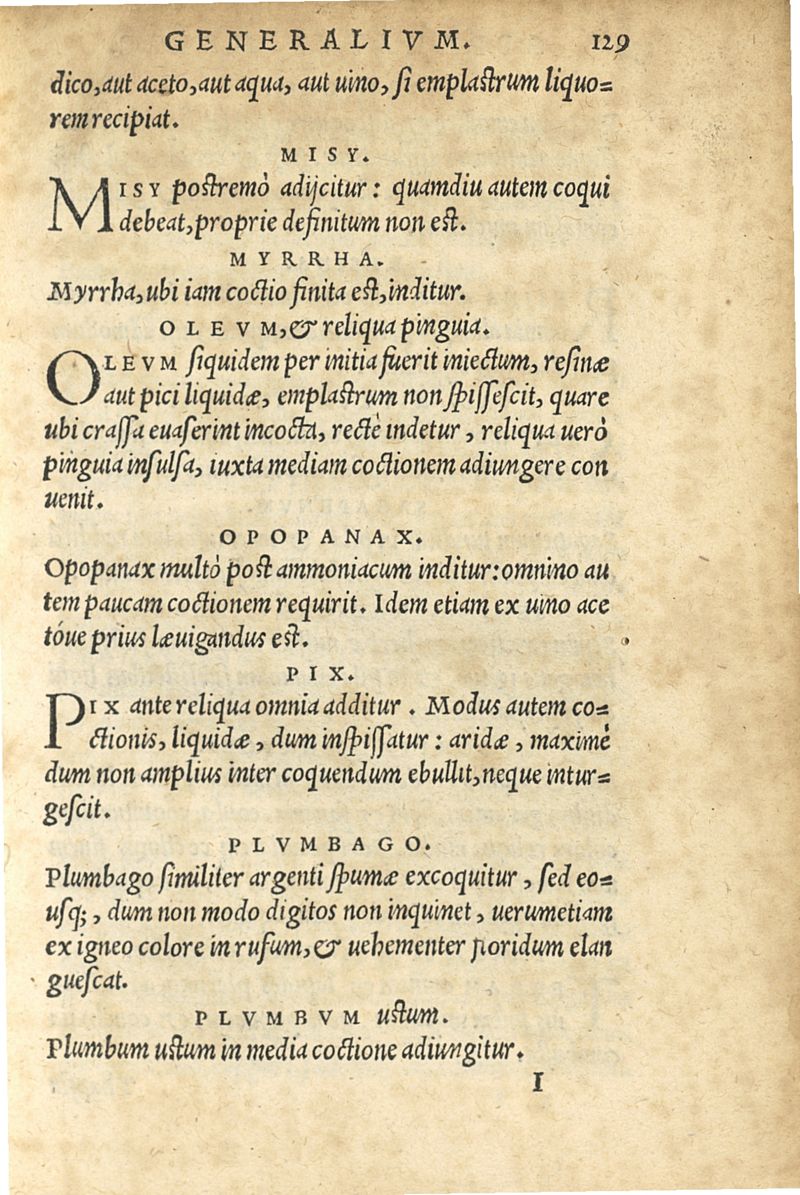 GENERALIVM. 129
dico, aut aceto, aut aqua, aut uino, si emplastrum liquo=
rem recipiat.
MISY.
MISY postremò adijcitur: quamdiu autem coqui
debeat, proprie definitum non est.
MYRRHA.
Myrrha, ubi iam coctio finita est, inditur.
OLEVM, & reliqua pinguia.
OLEVM siquidem per initia fuerit iniectum, resinæ
aut pici liquidæ, emplastrum non spissescit, quare
ubi crassa euaserint incocta, rectè indetur, reliqua uerò
pinguia insulsa, iuxta mediam coctionem adiungere con
uenit.
OPOPANAX.
Opopanax multò post ammoniacum inditur: omnino au
tem paucam coctionem requirit. Idem etiam ex uino ace
tóue prius læuigandus est.
PIX.
PIX ante reliqua omnia additur. Modus autem co=
ctionis, liquidæ, dum inspissatur: aridæ, maximè
dum non amplius inter coquendum ebullit, neque intur=
gescit.
PLVMBAGO.
Plumbago similiter argenti spumæ excoquitur, sed eo=
usq;, dum non modo digitos non inquinet, uerumetiam
ex igneo colore in rufum, & uehementer floridum elan
guescat.
PLVMBVM ustum.
Plumbum ustum in media coctione adiungitur.
I